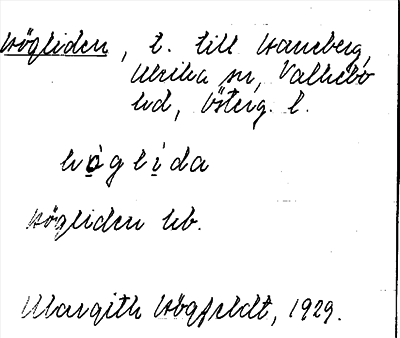 Högliden, l. till Haneberg,
Ulrika sn, Valkebo
hd, Österg. l.
höglida
Högliden hb.
Margith Högfeldt, 1929.